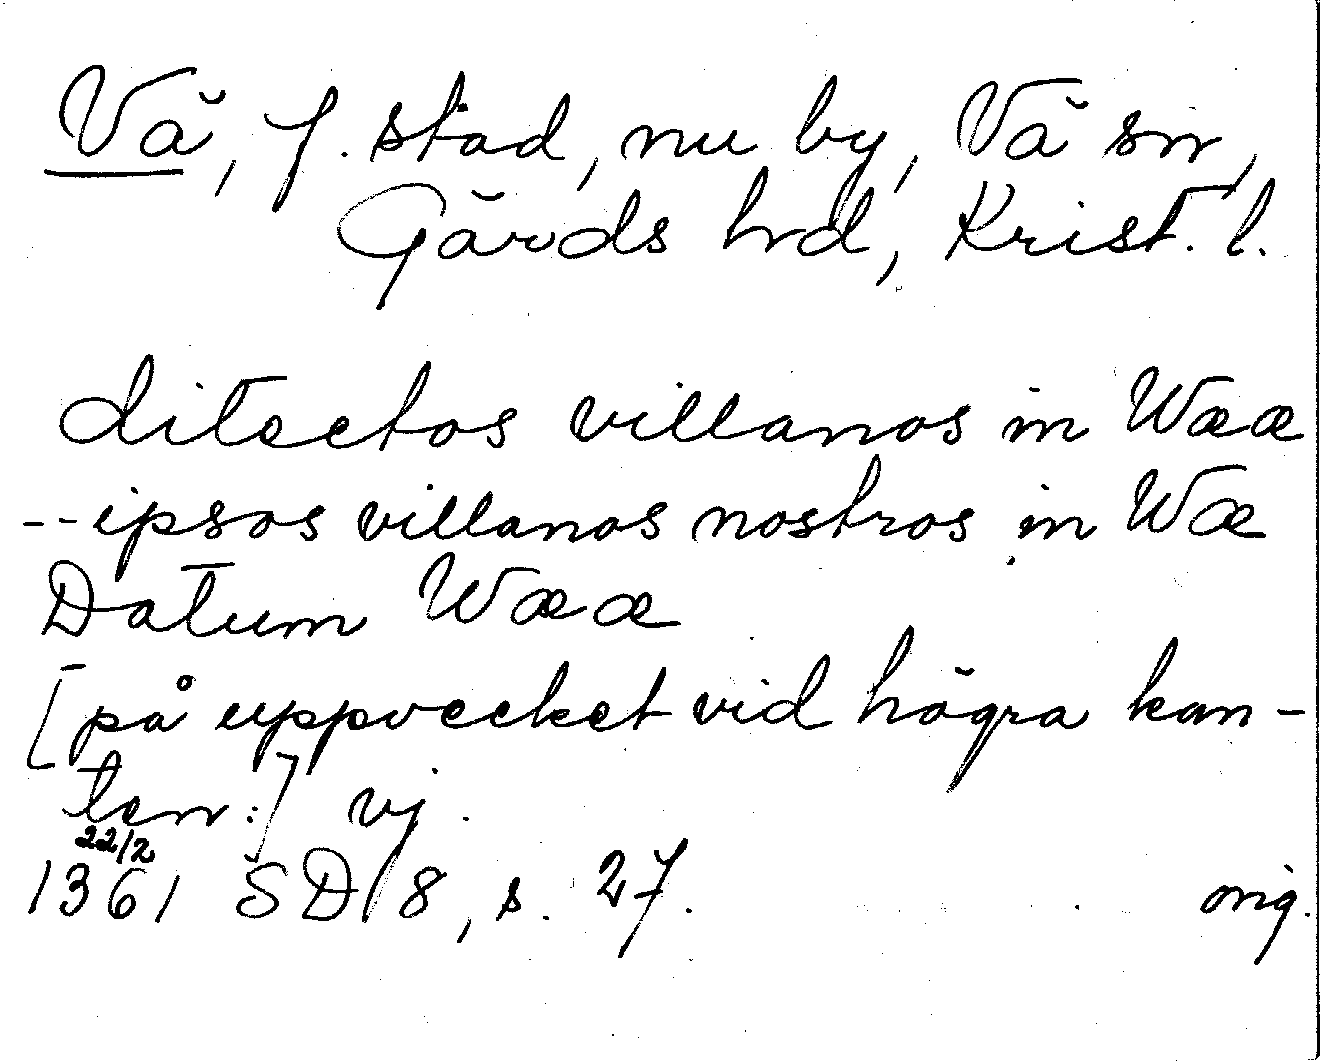 Vä, f. stad, nu by, Vä sn,
Gärds hrd, Krist. l.
dilectos villanos in Wææ
-- ipsos villanos nostros in Wæ
Datum Wææ
[på uppvecket vid högra kan-
ten:] vj.
22/2
1361 SD 8, s. 27. orig.